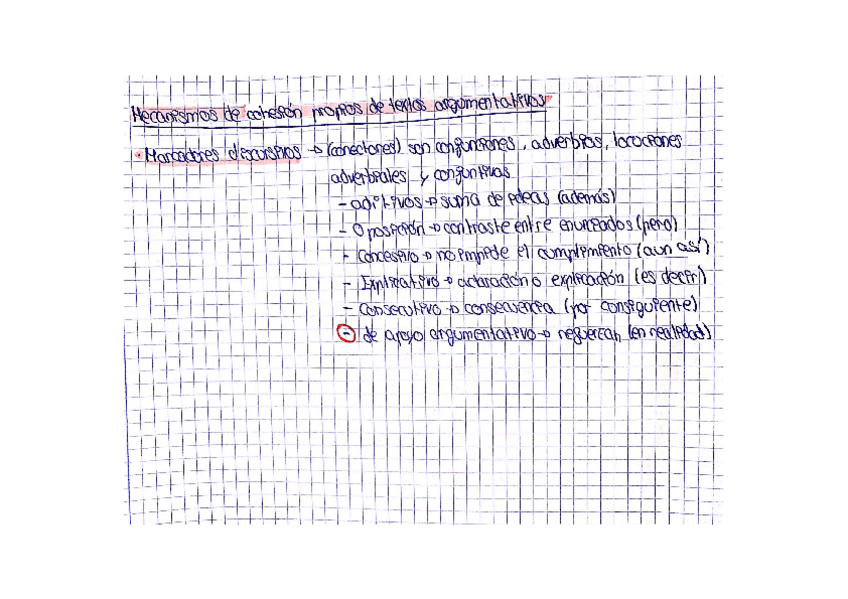 Mecanismos de cohesión propios de textos argumentativos
· Marcadores discursivos → (conectores) son conjunciones, adverbios, locuciones
adverbiales y conjuntivas
- aditivos → suma de ideas (además)
- Oposición → contraste entre enunciados (pero)
- Concesivo → no impide el cumplimiento (aun así)
- Explicativo → aclaración o explicación (es decir)
- Consecutivo → consecuencia (por consiguiente)
- de apoyo argumentativo → refuerzan (en realidad)